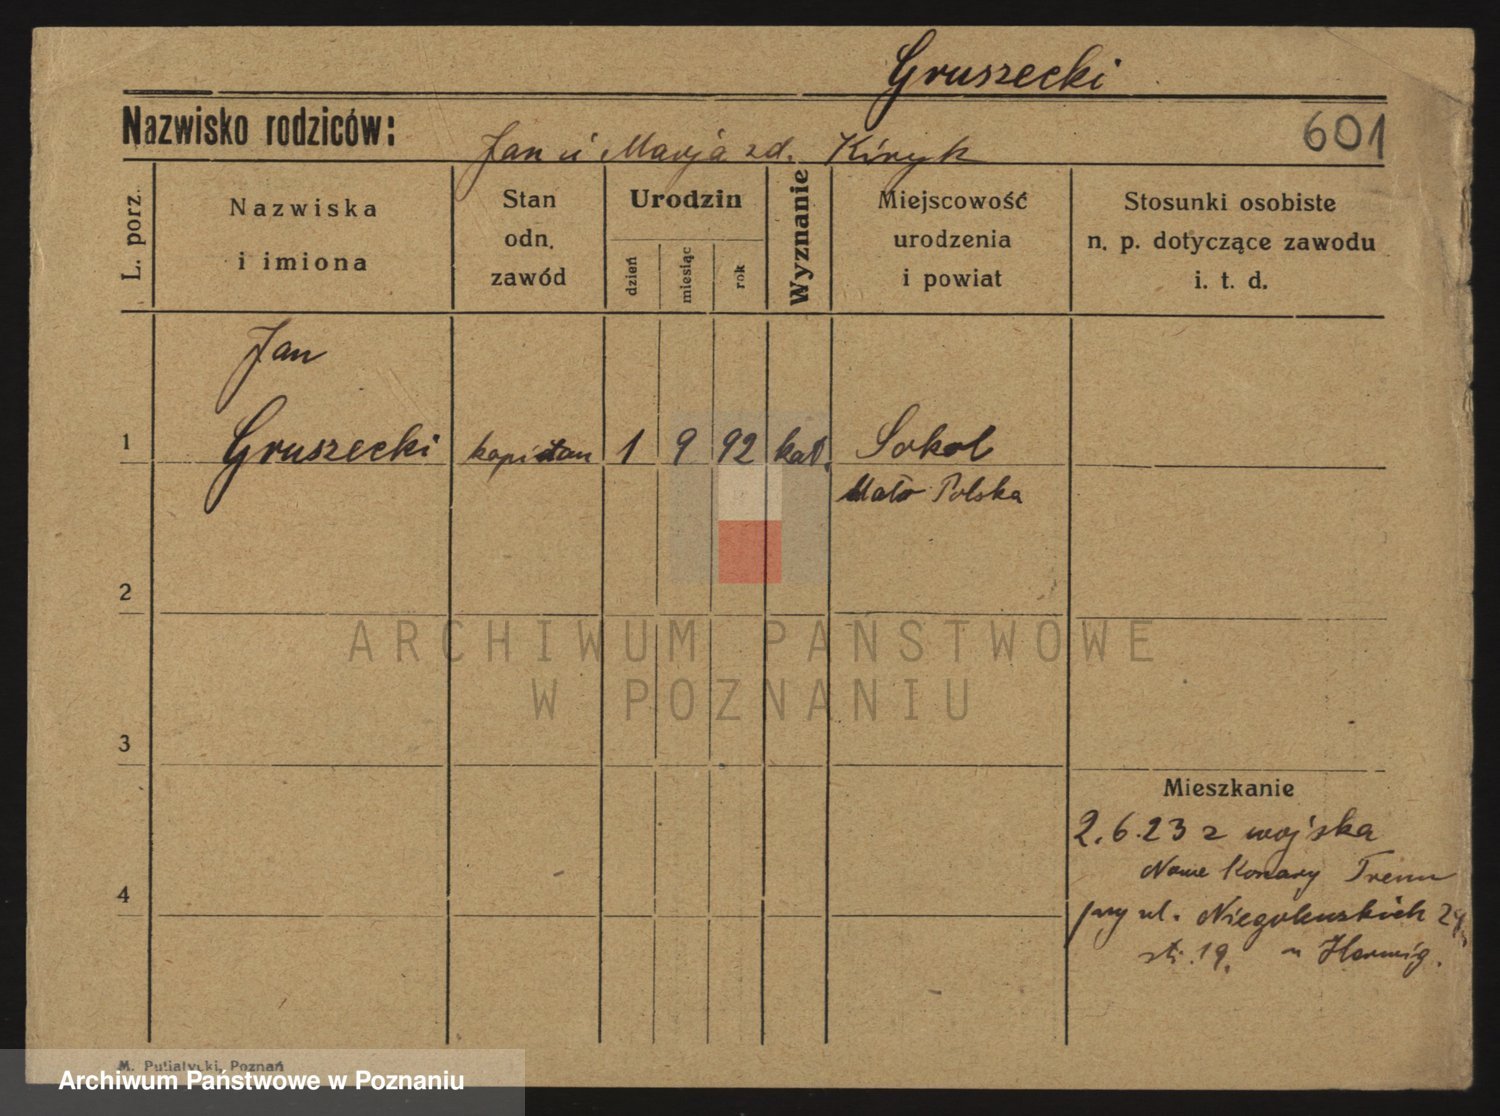 Gruszecki
Nazwisko rodziców:
601
Jan i Marja zd. Kiryk
L. porz.
Nazwiska
i imiona
Stan
odn.
zawód
Urodzin
dzień
miesiąc
rok
Wyznanie
Miejscowość
urodzenia
i powiat
Stosunki osobiste
n. p. dotyczące zawodu
i. t. d.
Jan
1 Gruszecki kapitan 1 9 92 kat. Sokol
Mało Polska
2
ARCHIWUM PAŃSTWOWE
W POZNANIU
3
Mieszkanie
2.6.23 z wojska
Konary
4
przy ul. Niegolewskich
19.
M. Putiatycki, Poznań
Archiwum Państwowe w Poznaniu